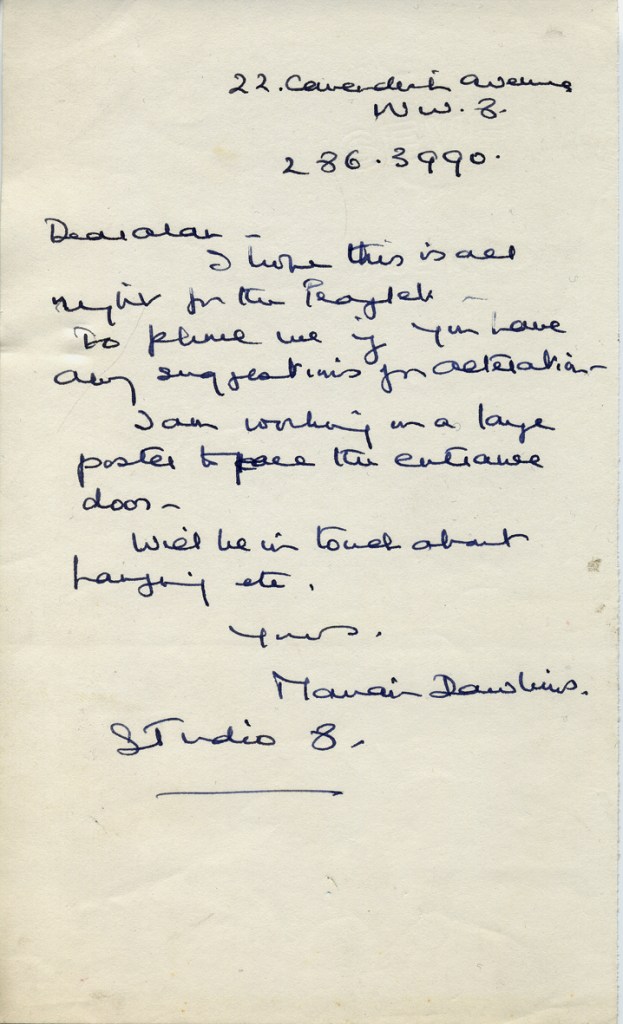 22. Cavendish Avenue
N W. 8.
286.3990.
Dear Alan -
I hope this is all
right for the
Do phone me if you have
any suggestions for alteration -
I am working on a large
poster to the entrance
door -
Will be in touch about
hanging etc.
Yours.
Dawkins.
Studio 8.